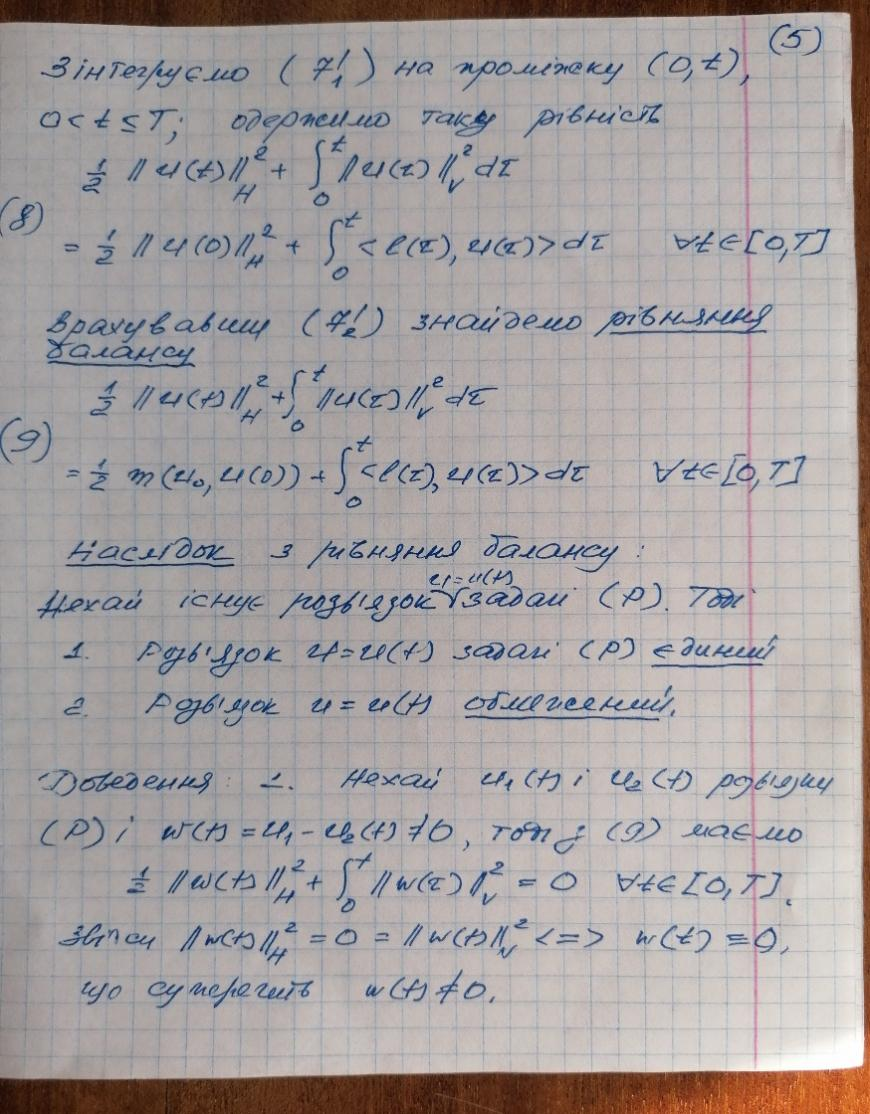 (5)
Зінтегруємо (7₁') на проміжку (0,t),
0 < t ≤ T; одержимо таку рівність
½ ||u(t)||²_H + ∫₀ᵗ ||u(τ)||²_V dτ
(8) = ½ ||u(0)||²_H + ∫₀ᵗ <l(τ), u(τ)> dτ ∀t∈[0,T]
Врахувавши (7₂') знайдемо рівняння
балансу
½ ||u(t)||²_H + ∫₀ᵗ ||u(τ)||²_V dτ
(9) = ½ m(u₀, u(0)) + ∫₀ᵗ <l(τ), u(τ)> dτ ∀t∈[0,T]
Наслідок з рівняння балансу:
u=u(t)
Нехай існує розв'язок √ задачі (P). Тоді
1. Розв'язок u=u(t) задачі (P) єдиний
2. Розв'язок u=u(t) обмежений.
Доведення: 1. Нехай u₁(t) і u₂(t) розв'язки
(P) і w(t) = u₁ - u₂(t) ≠ 0, тоді з (9) маємо
½ ||w(t)||²_H + ∫₀ᵗ ||w(τ)||²_V = 0 ∀t∈[0,T].
Звідси ||w(t)||²_H = 0 = ||w(t)||²_V <=> w(t) ≡ 0,
що суперечить w(t) ≠ 0.